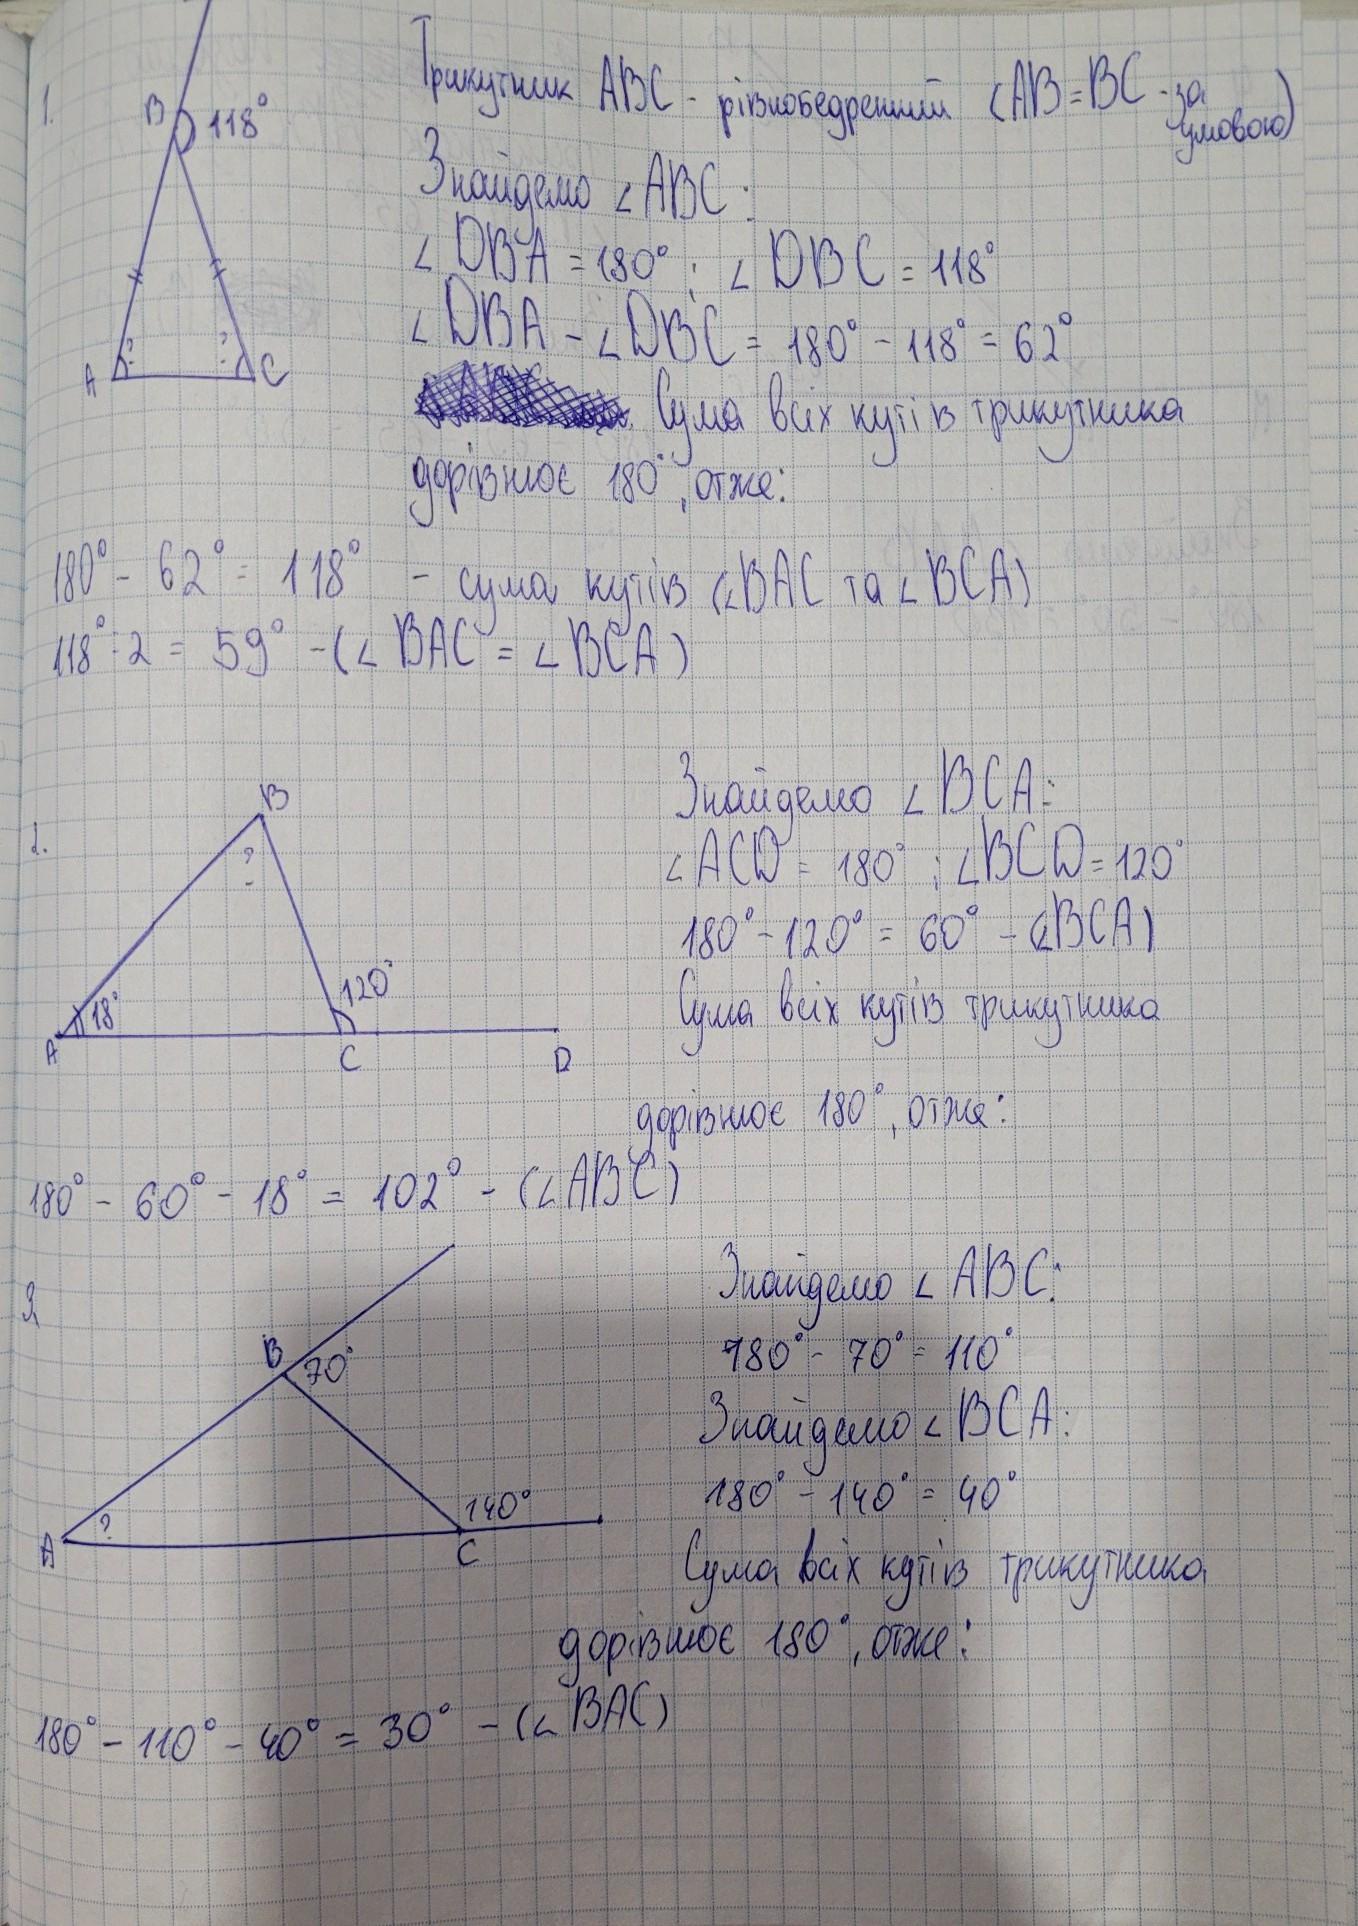 1.
B 118°
A ? ? C
Трикутник ABC - рівнобедрений (AB=BC - за умовою)
Знайдемо ∠ABC:
∠DBA = 180° ; ∠DBC = 118°
∠DBA - ∠DBC = 180° - 118° = 62°
Сума всіх кутів трикутника
дорівнює 180°, отже:
180° - 62° = 118° - сума кутів (∠BAC та ∠BCA)
118° : 2 = 59° - (∠BAC = ∠BCA)
2.
B
?
18° 120°
A C D
Знайдемо ∠BCA:
∠ACD = 180° ; ∠BCD = 120°
180° - 120° = 60° - (∠BCA)
Сума всіх кутів трикутника
дорівнює 180°, отже:
180° - 60° - 18° = 102° - (∠ABC)
3
B 70°
A ? 140°
C
Знайдемо ∠ABC:
180° - 70° = 110°
Знайдемо ∠BCA:
180° - 140° = 40°
Сума всіх кутів трикутника
дорівнює 180°, отже:
180° - 110° - 40° = 30° - (∠BAC)